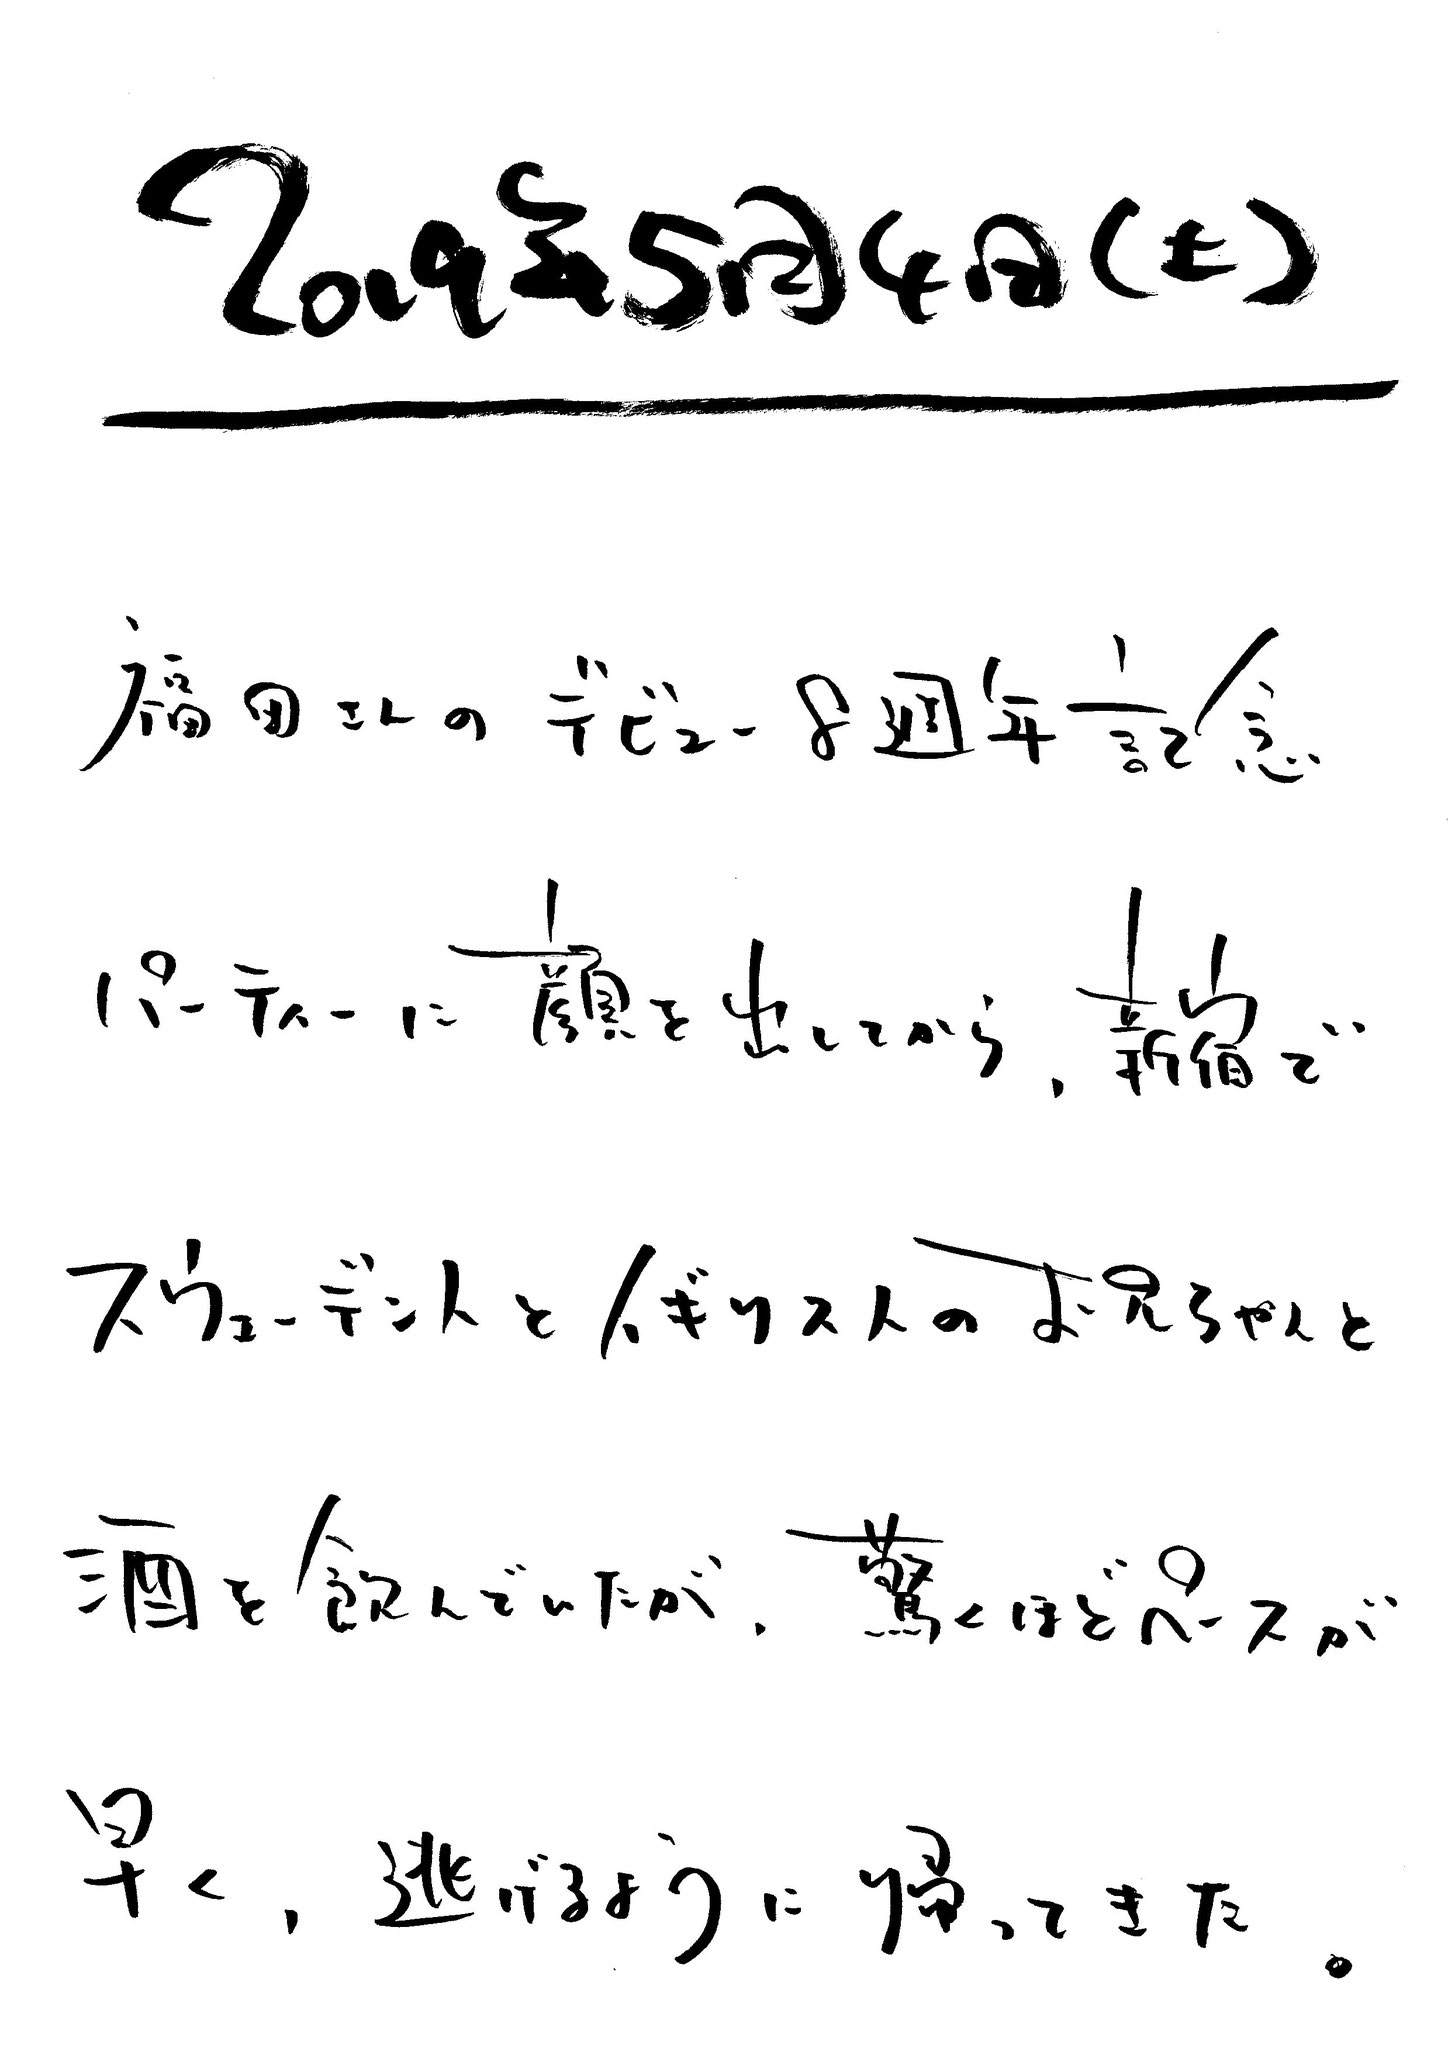 2019年5月4日(土)
福田さんのデビュー8週年記念
パーティーに顔を出してから、新宿で
スウェーデン人とイギリス人のお兄ちゃんと
酒を飲んでいたが、驚くほどペースが
早く、逃げるように帰ってきた。